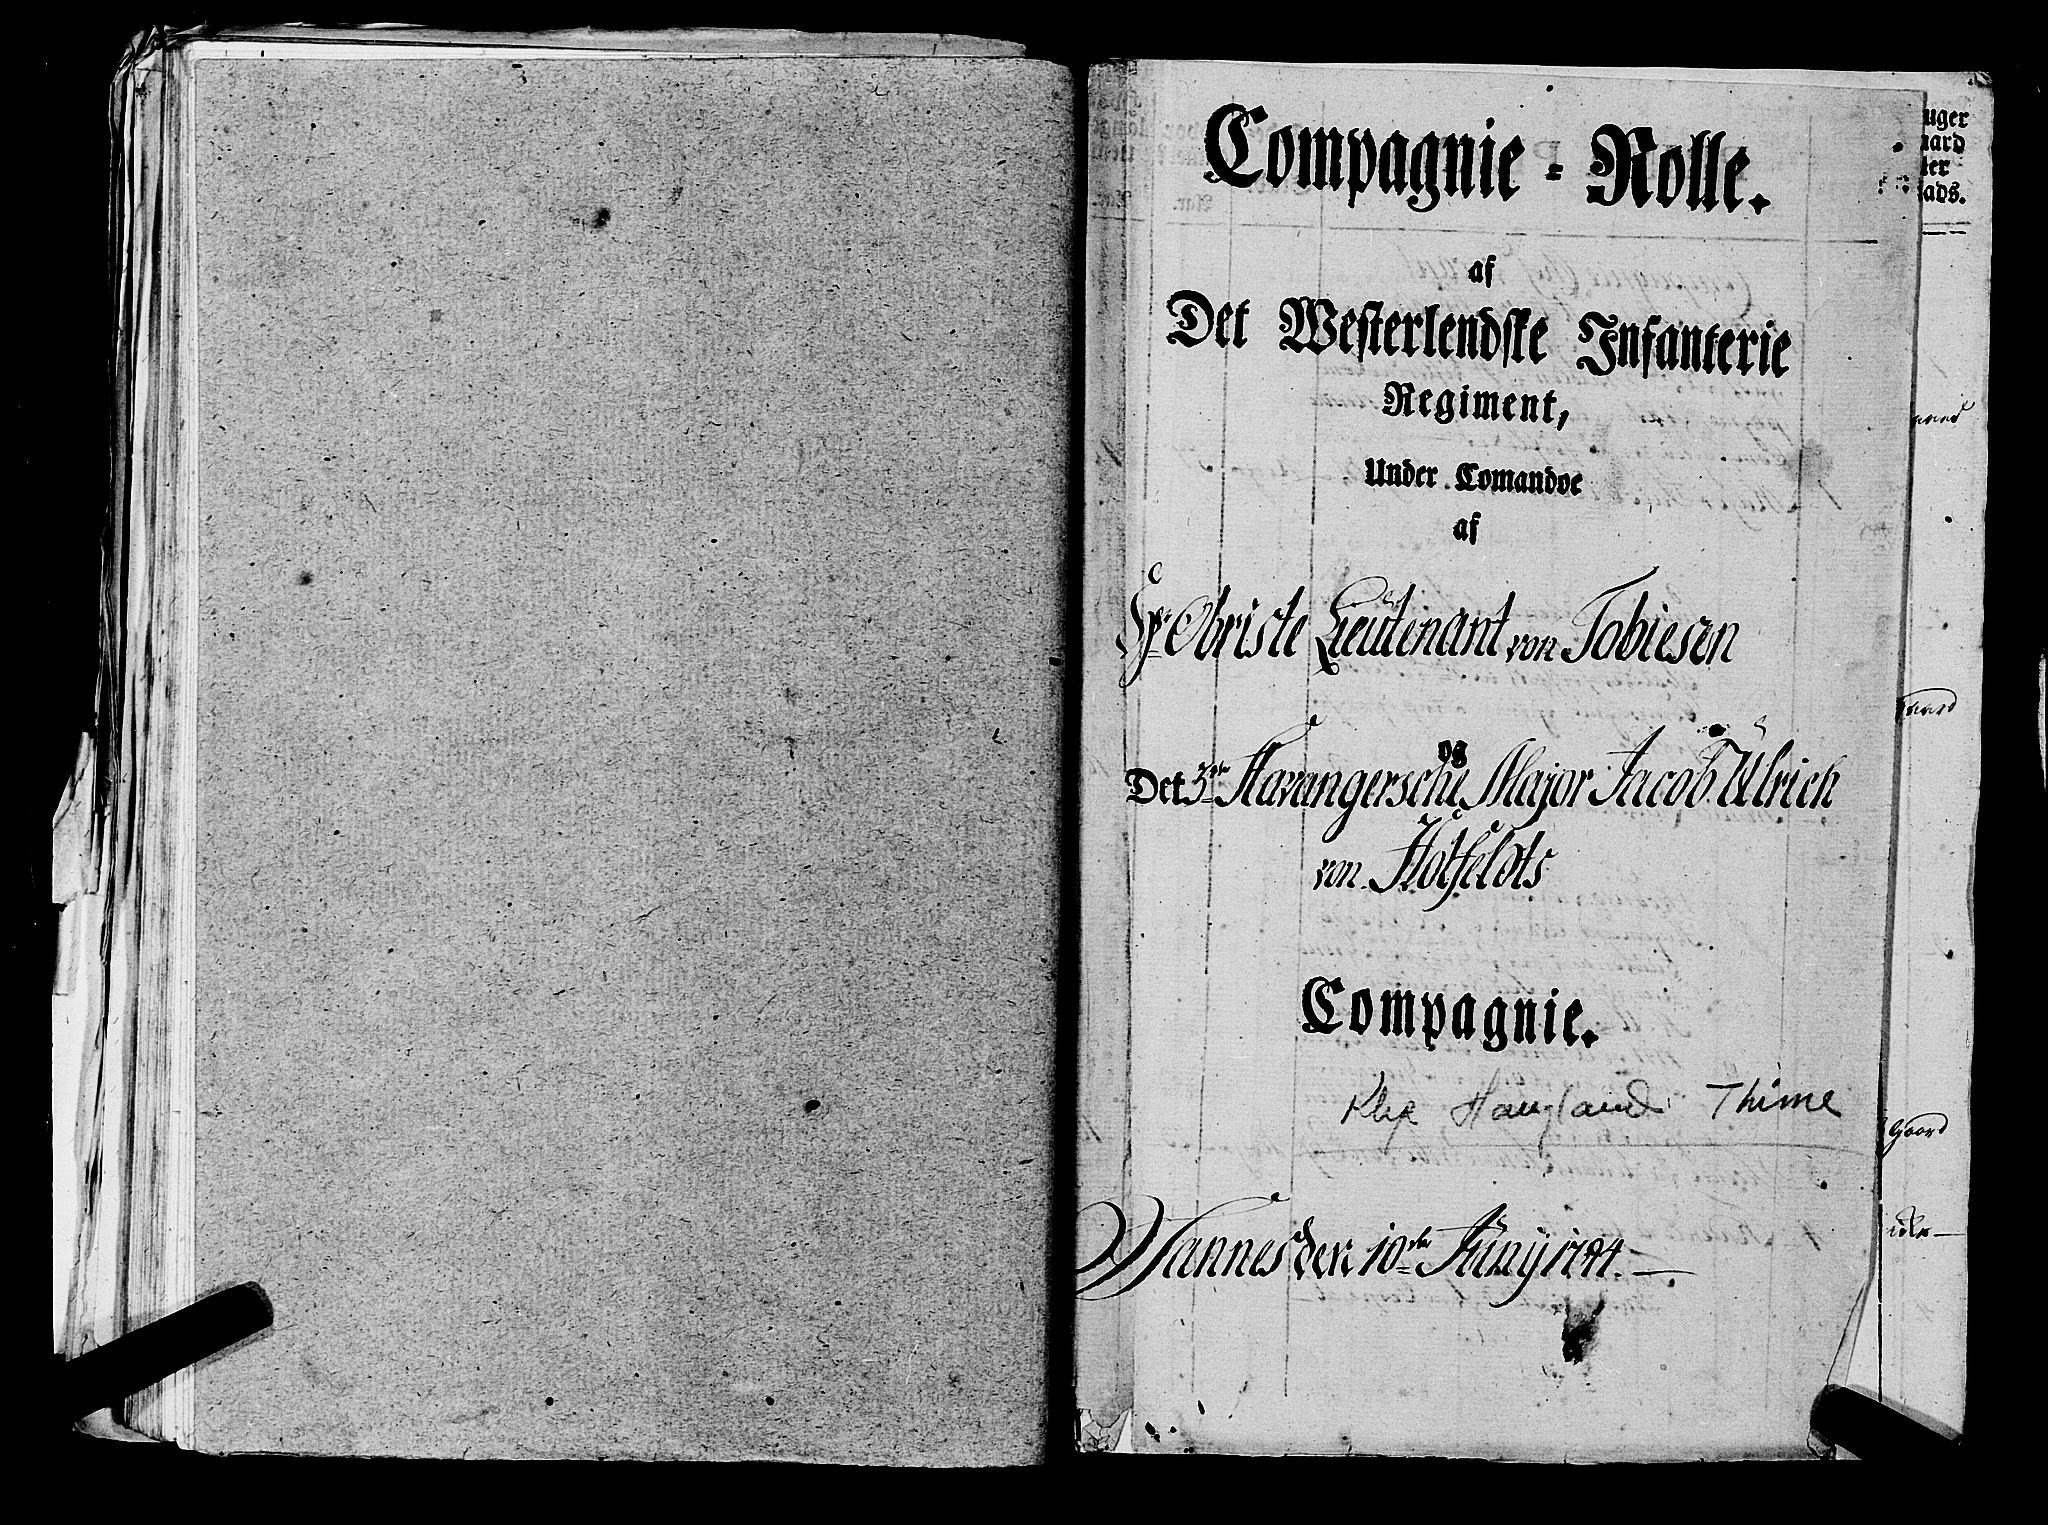 Compagnie - Rolle.
af
Det Westerlendske Infanterie
Regiment,
Under Comandoe
af
Hr. Obriste Lieutenant von Tobiesen
og
Det 3die Stavangersche Major Jacob Ulrich
von Kötfeldts
Compagnie.
Klep Haugland Thime
Wannes den 10de Juny
uger
aard
ter
lads.
gaard